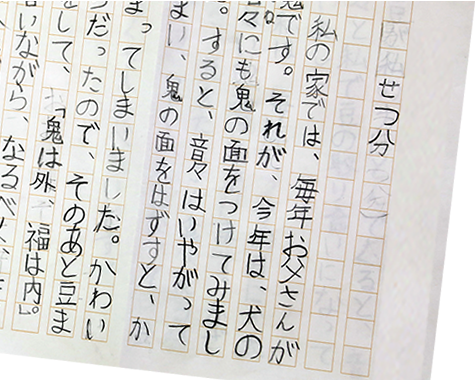 せつ分
私の家では、毎年お父さんが
鬼です。それが、今年は、犬の
々にも鬼の面をつけてみまし
。すると、音々はいやがって
まい、鬼の面をはずすと、か
まってしまいました。かわい
うだったので、そのあと豆ま
をして、「鬼は外、福は内」。
いながら、なるべく、